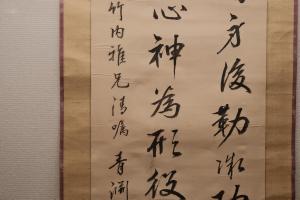 方後勒
心神為形役
竹内雅兄清嘱 青渊